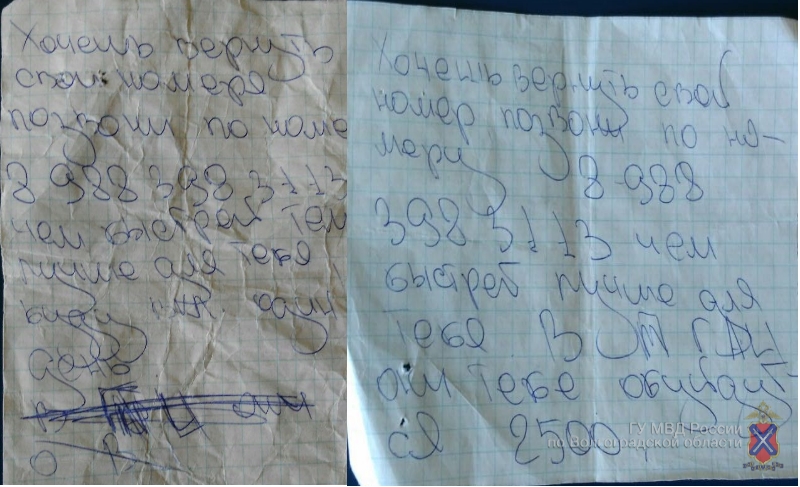 Хочешь вернуть
свои номера
позвони по номе
8 988 398 3113
чем быстрей тем
лучше для тебя
жду один
день
Хочешь вернуть свой
номер позвони по но-
меру 8-988
398 3113 чем
быстрей лучше для
тебя В
они тебе обойдут-
ся 2500
ГУ МВД России
по Волгоградской области